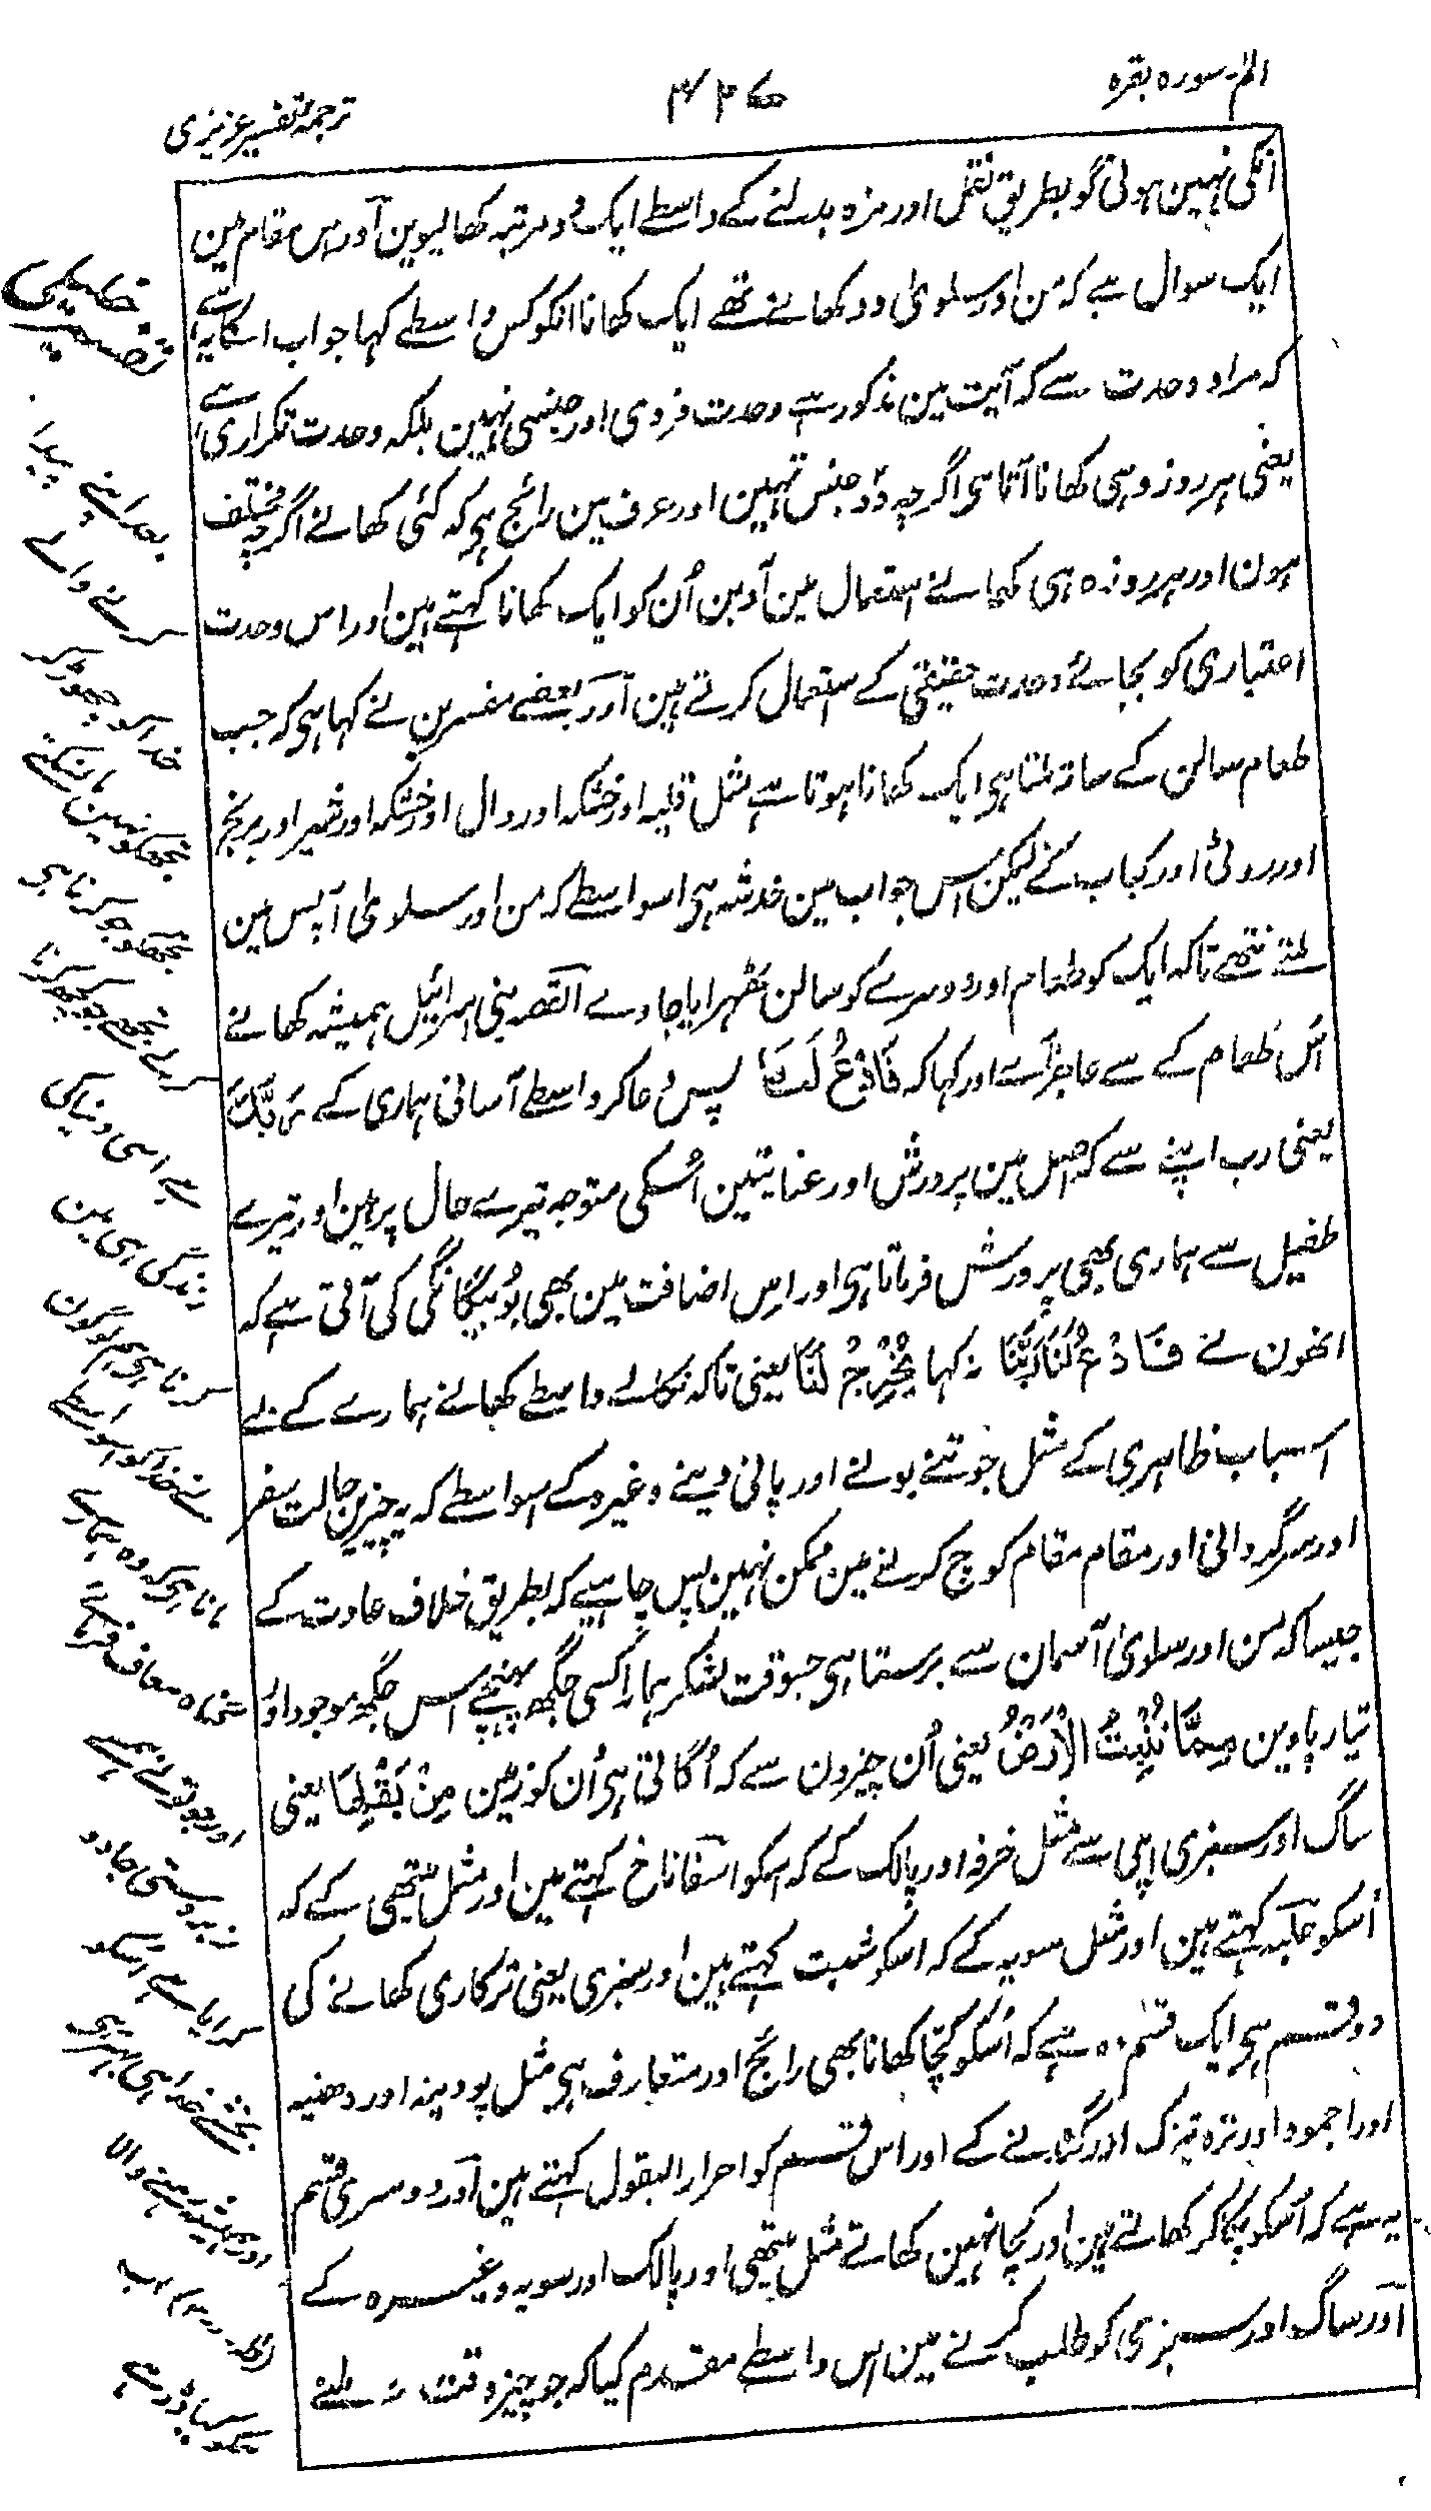 الم - سورہ بقرہ
۴۲۷
ترجمہ تفسیر عزیزی
انکی نہین ہوتی گو بطریق نقل اور مزہ بدلنے کے واسطے ایک دو مرتبہ کھا لیوین آور اس مقام مین
ایک سوال ہے کہ من اور سلویٰ دو کھانے تھے ایک کھانا انکو کس واسطے کہا جواب اسکا یہ ہے
کہ مراد وحدت سے کہ آیت مین مذکور ہے وحدت فردی اور جنسی نہین بلکہ وحدت تکراری ہے
یعنی ہر روز وہی کھانا آتا ہی اگرچہ دو جنس تہین اور عرف مین رائج ہی کہ کئی کھانے اگرچہ مختلف
ہون اور ہر روز وہ ہی کھانے استعمال مین آوین اُن کو ایک کھانا کہتے ہین اور اس وحدت
اعتباری کو بجائے وحدت حقیقی کے استعمال کرتے ہین آور بعضے مفسرین نے کہا ہی کہ جب
طعام سالن کے ساتہ ملتا ہی ایک کھانا ہوتا ہے مثل قلیہ اور خشکہ اور دال اور خشکہ اور شیر اور برنج
اور روٹی اور کباب کے لیکن اس جواب مین خدشہ ہی اسواسطے کہ من اور سلویٰ آپس مین
ملتے نتھے تاکہ ایک کو طعام اور دوسرے کو سالن ٹھہرایا جاوے القصہ بنی اسرائیل ہمیشہ کھانے
اس طعام کے سے عاجز آے اور کہا کہ فَادْعُ لَنَا پس دعا کر واسطے آسانی ہماری کے رَبَّكَ
یعنی رب اپنے سے کہ اصل مین پرورش اور عنایتین اُسکی متوجہ تیرے حال پر ہین اور تیرے
طفیل سے ہماری بھی پرورش فرماتا ہی اور اس اضافت مین بھی بُو بیگانگی کی آتی ہے کہ
انھون نے فَادْعُ لَنَا رَبَّنَا نہ کہا يُخْرِجْ لَنَا یعنی تاکہ نکالے واسطے کھانے ہمارے کے بے
اسباب ظاہری کے مثل جوتنے بونے اور پانی دینے وغیرہ کے اسواسطے کہ یہ چیزین حالت سفر
اور سرگردانی اور مقام مقام کوچ کرنے مین ممکن نہین پس چاہیے کہ بطریق خلاف عادت کے
جیسا کہ من اور سلویٰ آسمان سے برستا ہی جسوقت لشکر ہمارا کسی جگھ پہنچے اس جگھ موجود اور
تیار پاوین مِمَّا تُنْبِتُ الْاَرْضُ یعنی اُن چیزون سے کہ اُگاتی ہی اُن کو زمین مِنْ بَقْلِهَا یعنی
ساگ اور سبزی اپنی سے مثل خرفہ اور پالک کے کہ اسکو اسفاناخ کہتے ہین اور مثل میتھی کے کہ
اُسکو حلبہ کہتے ہین اور مثل سویہ کے کہ اسکو شبت کہتے ہین اور سبزی یعنی ترکاری کھانے کی
دو قسم ہی ایک قسم وہ ہے کہ اُسکو کچا کھانا بھی رائج اور متعارف ہی مثل پودینہ اور دھنیہ
اور اجمود اور ترہ تیزک اور گندنے کے اور اس قسم کو احرار البقول کہتے ہین آور دوسری قسم
یہ ہے کہ اُسکو پکا کر کھاتے ہین اور کچا نہین کھاتے مثل میتھی اور پالک اور سویہ وغیرہ کے
آور ساگ اور سبزی کو طلب کرنے مین اس واسطے مقدم کیا کہ جو چیز وقت نہ ملنے
بعد اپنے پیدا
کرنے والے
خدا کو چھوڑ کر
تجھکو نہین مانینگے
تجھکو جو کرنا ہی
کرلے تجھسے جو کچھ کرنا
ہے اسی دنیا کی
زندگی ہی مین
کرنا ہی ہم لوگون
نے خدا کو اسواسطے
مانا ہی کہ وہ ہمارے
گناہ معاف فرمائے
اور جو تونے ہمسے
زبردستی جادو
کرایا ہے اسکو
بخشے خدا ہی بہتر ہی
اور ہمیشہ رہنے والا